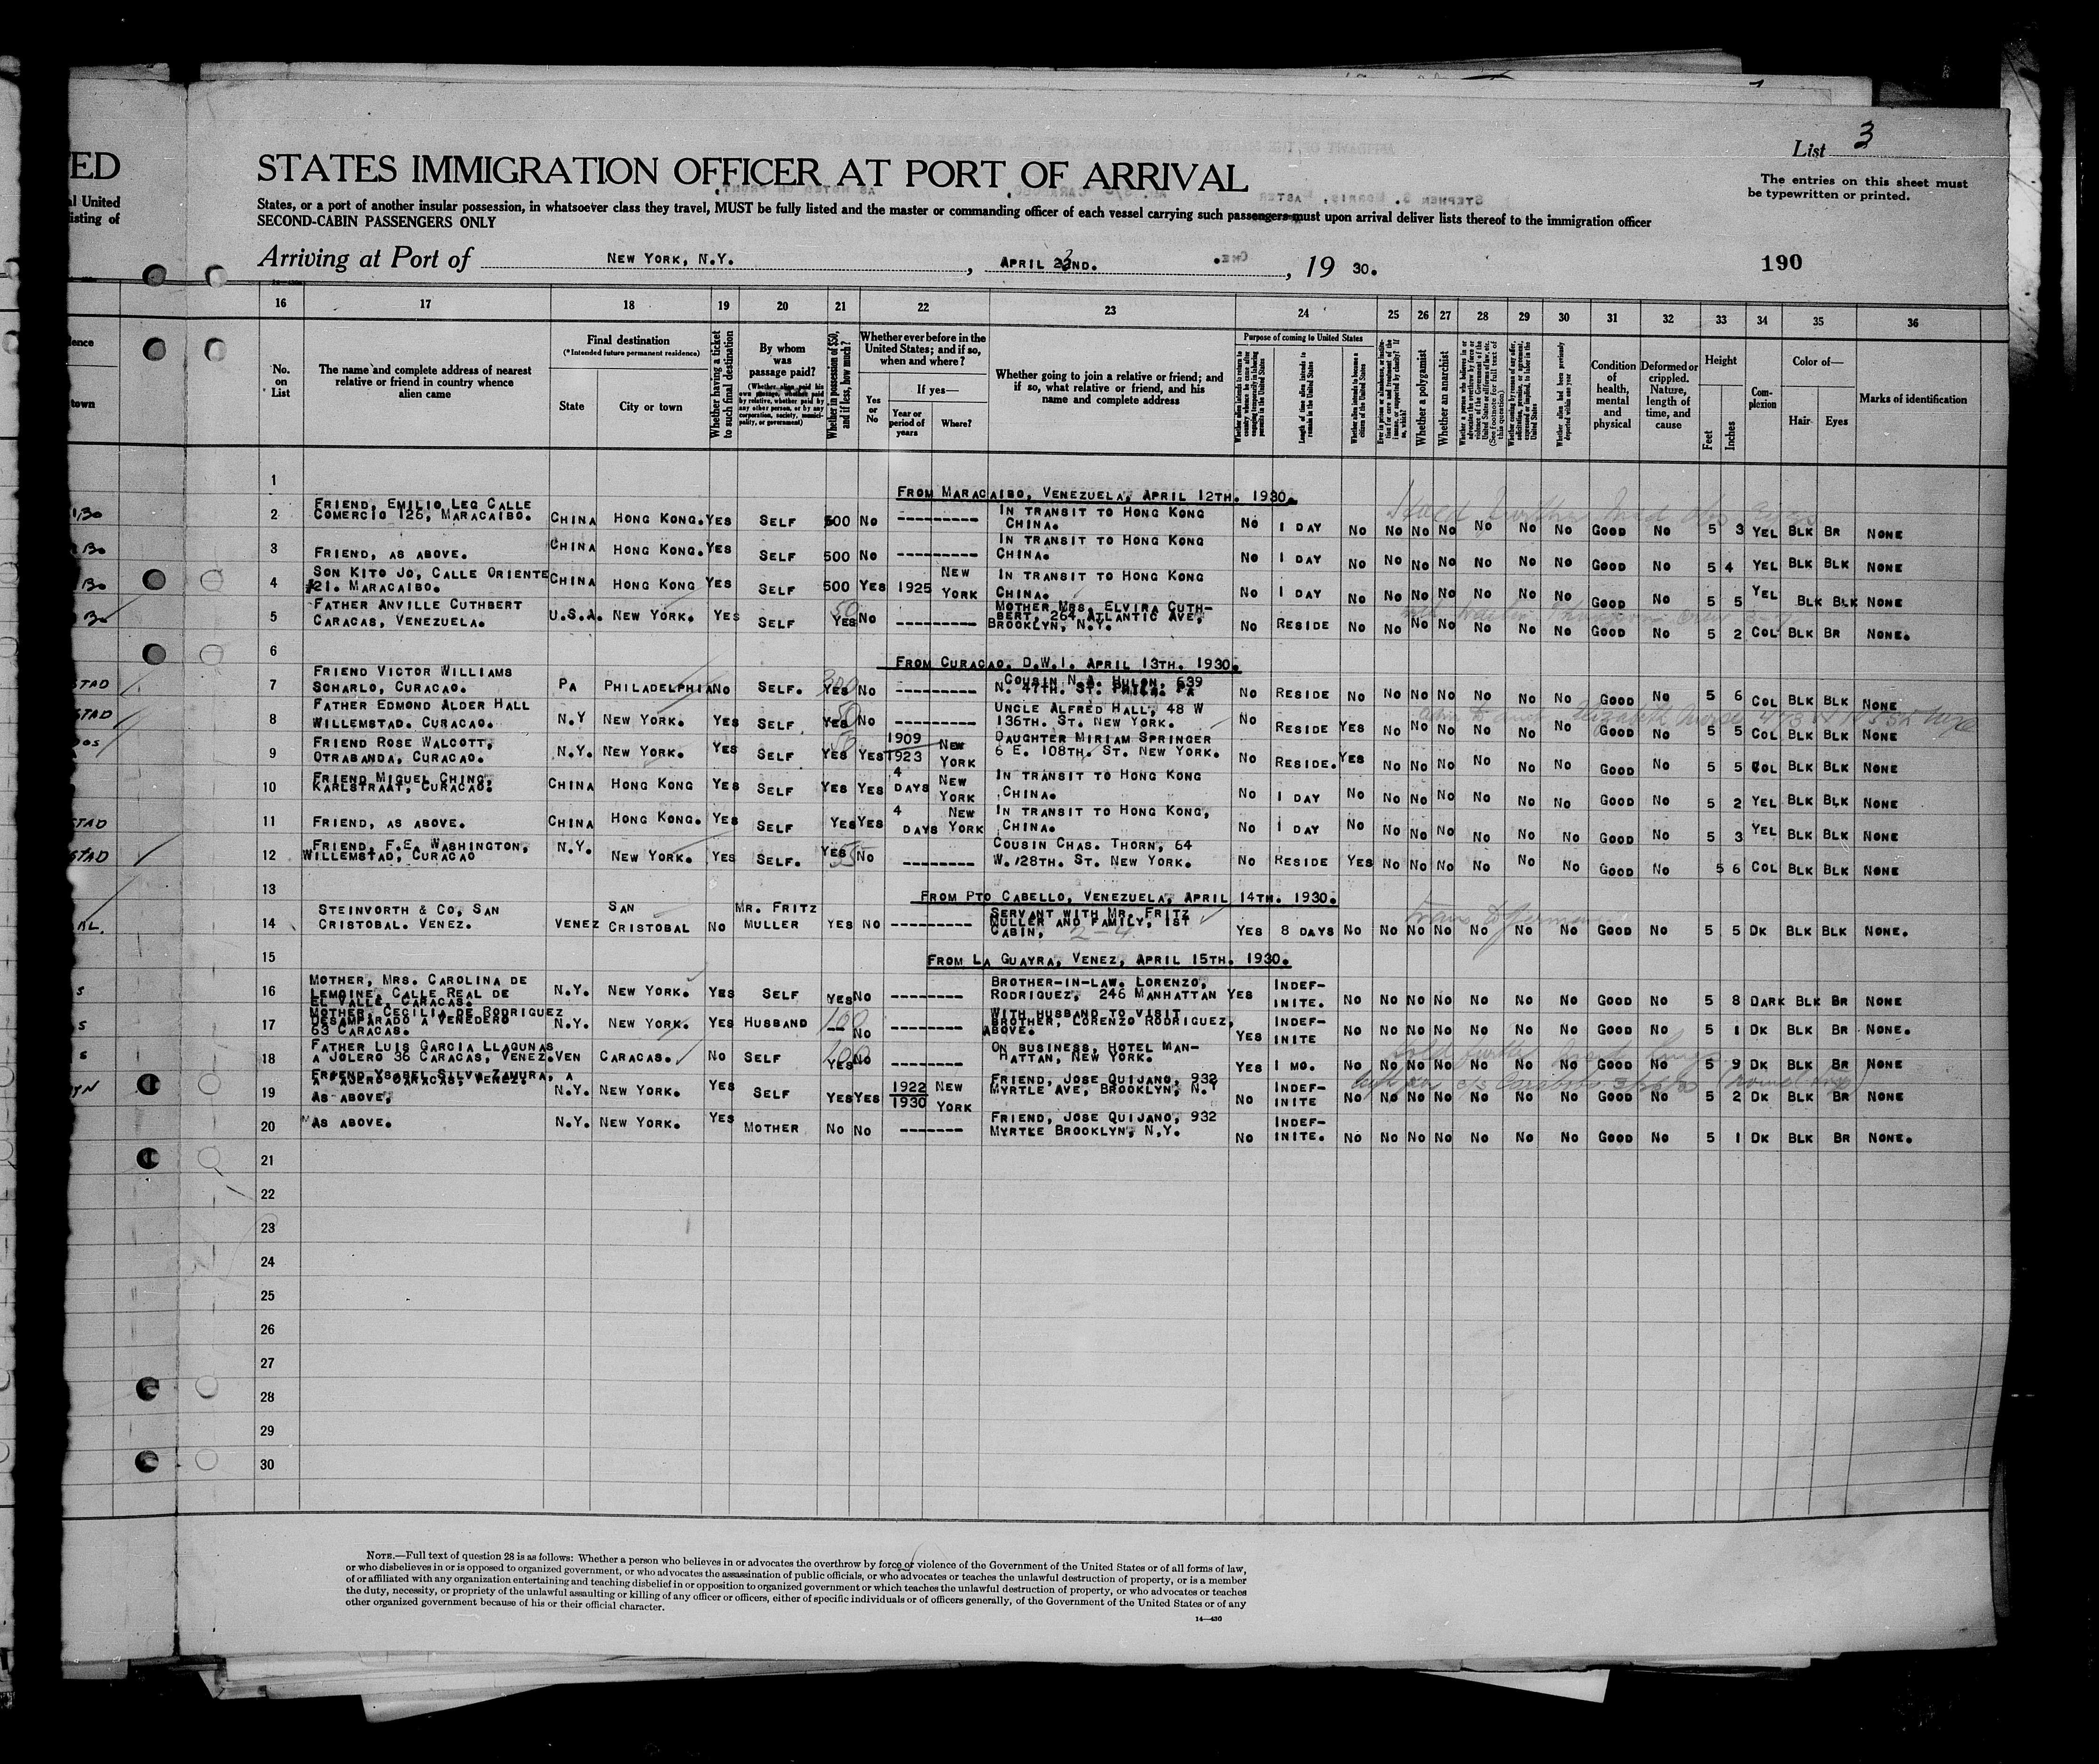 List 3
ED
STATES IMMIGRATION OFFICER AT PORT OF ARRIVAL
The entries on this sheet must
be typewritten or printed.
al United
isting of
States, or a port of another insular possession, in whatsoever class they travel, MUST be fully listed and the master or commanding officer of each vessel carrying such passengers must upon arrival deliver lists thereof to the immigration officer
SECOND-CABIN PASSENGERS ONLY
Arriving at Port of NEW YORK, N.Y., APRIL 23ND., 19 30.
190
16 17 18 19 20 21 22 23 24 25 26 27 28 29 30 31 32 33 34 35 36
No. on List
The name and complete address of nearest relative or friend in country whence alien came
Final destination
(*Intended future permanent residence)
State
City or town
Whether having a ticket to such final destination
By whom was passage paid?
(Whether alien paid his own passage, whether paid by relative, whether paid by any other person, or by any corporation, society, municipality, or government)
Whether in possession of $50, and if less, how much?
Whether ever before in the United States; and if so, when and where?
Yes or No
If yes—
Year or period of years
Where?
Whether going to join a relative or friend; and if so, what relative or friend, and his name and complete address
Purpose of coming to United States
Length of time alien intends to remain in the United States
Whether alien intends to become a citizen of the United States
Whether a polygamist
Whether an anarchist
Condition of health, mental and physical
Deformed or crippled. Nature, length of time, and cause
Height
Feet
Inches
Complexion
Color of—
Hair
Eyes
Marks of identification
1
FROM MARACAIBO, VENEZUELA, APRIL 12TH. 1930.
2 FRIEND, EMILIO LEG CALLE COMERCIO 126, MARACAIBO. CHINA HONG KONG. YES SELF 500 NO --------- IN TRANSIT TO HONG KONG CHINA. NO 1 DAY NO NO NO NO NO NO NO GOOD NO 5 3 YEL BLK BR NONE
3 FRIEND, AS ABOVE. CHINA HONG KONG. YES SELF 500 NO --------- IN TRANSIT TO HONG KONG CHINA. NO 1 DAY NO NO NO NO NO NO NO GOOD NO 5 4 YEL BLK BLK NONE
4 SON KITO JO, CALLE ORIENTE 121. MARACAIBO. CHINA HONG KONG YES SELF 500 YES 1925 NEW YORK IN TRANSIT TO HONG KONG CHINA. NO 1 DAY NO NO NO NO NO NO NO GOOD NO 5 5 YEL BLK BLK NONE
5 FATHER ANVILLE CUTHBERT CARACAS, VENEZUELA. U.S.A. NEW YORK. YES SELF 50 YES NO --------- MOTHER MRS. ELVIRA CUTHBERT, 264 ATLANTIC AVE, BROOKLYN, N.Y. NO RESIDE NO NO NO NO NO NO NO GOOD NO 5 2 COL BLK BR NONE.
6
FROM CURACAO, D.W.I. APRIL 13TH. 1930.
7 FRIEND VICTOR WILLIAMS SCHARLO, CURACAO. PA PHILADELPHIA NO SELF. YES NO --------- COUSIN N.A. HULON, 639 N. 47TH. ST. PHILA. PA NO RESIDE NO NO NO NO NO NO NO GOOD NO 5 6 COL BLK BLK NONE
8 FATHER EDMOND ALDER HALL WILLEMSTAD. CURACAO. N.Y NEW YORK. YES SELF 50 YES NO --------- UNCLE ALFRED HALL, 48 W 136TH. ST. NEW YORK. NO RESIDE YES NO NO NO NO NO NO GOOD NO 5 5 COL BLK BLK NONE
9 FRIEND ROSE WALCOTT, OTRABANDA, CURACAO. N.Y. NEW YORK. YES SELF 50 YES YES 1909 1923 NEW YORK DAUGHTER MIRIAM SPRINGER 6 E. 108TH. ST. NEW YORK. NO RESIDE. YES NO NO NO NO NO NO GOOD NO 5 5 COL BLK BLK NONE
10 FRIEND MIGUEL CHING, KARLSTRAAT, CURACAO. CHINA HONG KONG YES SELF YES YES 4 DAYS NEW YORK IN TRANSIT TO HONG KONG CHINA. NO 1 DAY NO NO NO NO NO NO NO GOOD NO 5 2 YEL BLK BLK NONE
11 FRIEND, AS ABOVE. CHINA HONG KONG. YES SELF YES YES 4 DAYS NEW YORK IN TRANSIT TO HONG KONG, CHINA. NO 1 DAY NO NO NO NO NO NO NO GOOD NO 5 3 YEL BLK BLK NONE
12 FRIEND, F.E. WASHINGTON, WILLEMSTAD, CURACAO N.Y. NEW YORK. YES SELF. YES 55 NO -------- COUSIN CHAS. THORN, 64 W. 128TH. ST. NEW YORK. NO RESIDE YES NO NO NO NO NO NO GOOD NO 5 6 COL BLK BLK NONE
13
FROM PTO CABELLO, VENEZUELA, APRIL 14TH. 1930.
14 STEINVORTH & CO, SAN CRISTOBAL. VENEZ. VENEZ SAN CRISTOBAL NO MR. FRITZ MULLER YES NO --------- SERVANT WITH MR. FRITZ MULLER AND FAMILY, 1ST CABIN, 2-4 YES 8 DAYS NO NO NO NO NO NO NO GOOD NO 5 5 DK BLK BLK NONE.
15
FROM LA GUAYRA, VENEZ, APRIL 15TH. 1930.
16 MOTHER, MRS. CAROLINA DE LEMOINE, CALLE REAL DE EL VALLE, CARACAS. N.Y. NEW YORK. YES SELF YES NO -------- BROTHER-IN-LAW. LORENZO, RODRIGUEZ, 246 MANHATTAN YES INDEFINITE. NO NO NO NO NO NO NO GOOD NO 5 8 DARK BLK BR NONE
17 MOTHER, CECILIA DE RODRIGUEZ DESAMPARADO A VENEDERO 63 CARACAS. N.Y. NEW YORK. YES HUSBAND 100 NO -------- WITH HUSBAND TO VISIT BROTHER, LORENZO RODRIGUEZ, ABOVE. YES INDEFINITE NO NO NO NO NO NO NO GOOD NO 5 1 DK BLK BR NONE.
18 FATHER LUIS GARCIA LLAGUNAS A JOLERO 36 CARACAS, VENEZ. VEN CARACAS. NO SELF 200 YES NO -------- ON BUSINESS, HOTEL MANHATTAN, NEW YORK. YES 1 MO. NO NO NO NO NO NO NO GOOD NO 5 9 DK BLK BR NONE
19 FRIEND YSABEL SILVA ZAMURA, A CARACAS, VENEZ. AS ABOVE, N.Y. NEW YORK. YES SELF YES YES 1922 1930 NEW YORK FRIEND, JOSE QUIJANO, 932 MYRTLE AVE, BROOKLYN, N.Y NO INDEFINITE NO NO NO NO NO NO NO GOOD NO 5 2 DK BLK BR NONE
20 "AS ABOVE. N.Y. NEW YORK. YES MOTHER NO NO -------- FRIEND, JOSE QUIJANO, 932 MYRTLE BROOKLYN, N.Y. NO INDEFINITE. NO NO NO NO NO NO NO GOOD NO 5 1 DK BLK BR NONE.
21
22
23
24
25
26
27
28
29
30
NOTE.—Full text of question 28 is as follows: Whether a person who believes in or advocates the overthrow by force or violence of the Government of the United States or of all forms of law,
or who disbelieves in or is opposed to organized government, or who advocates the assassination of public officials, or who advocates or teaches the unlawful destruction of property, or is a member
of or affiliated with any organization entertaining and teaching disbelief in or opposition to organized government or which teaches the unlawful destruction of property, or who advocates or teaches
the duty, necessity, or propriety of the unlawful assaulting or killing of any officer or officers, either of specific individuals or of officers generally, of the Government of the United States or of any
other organized government because of his or their official character.
14—430